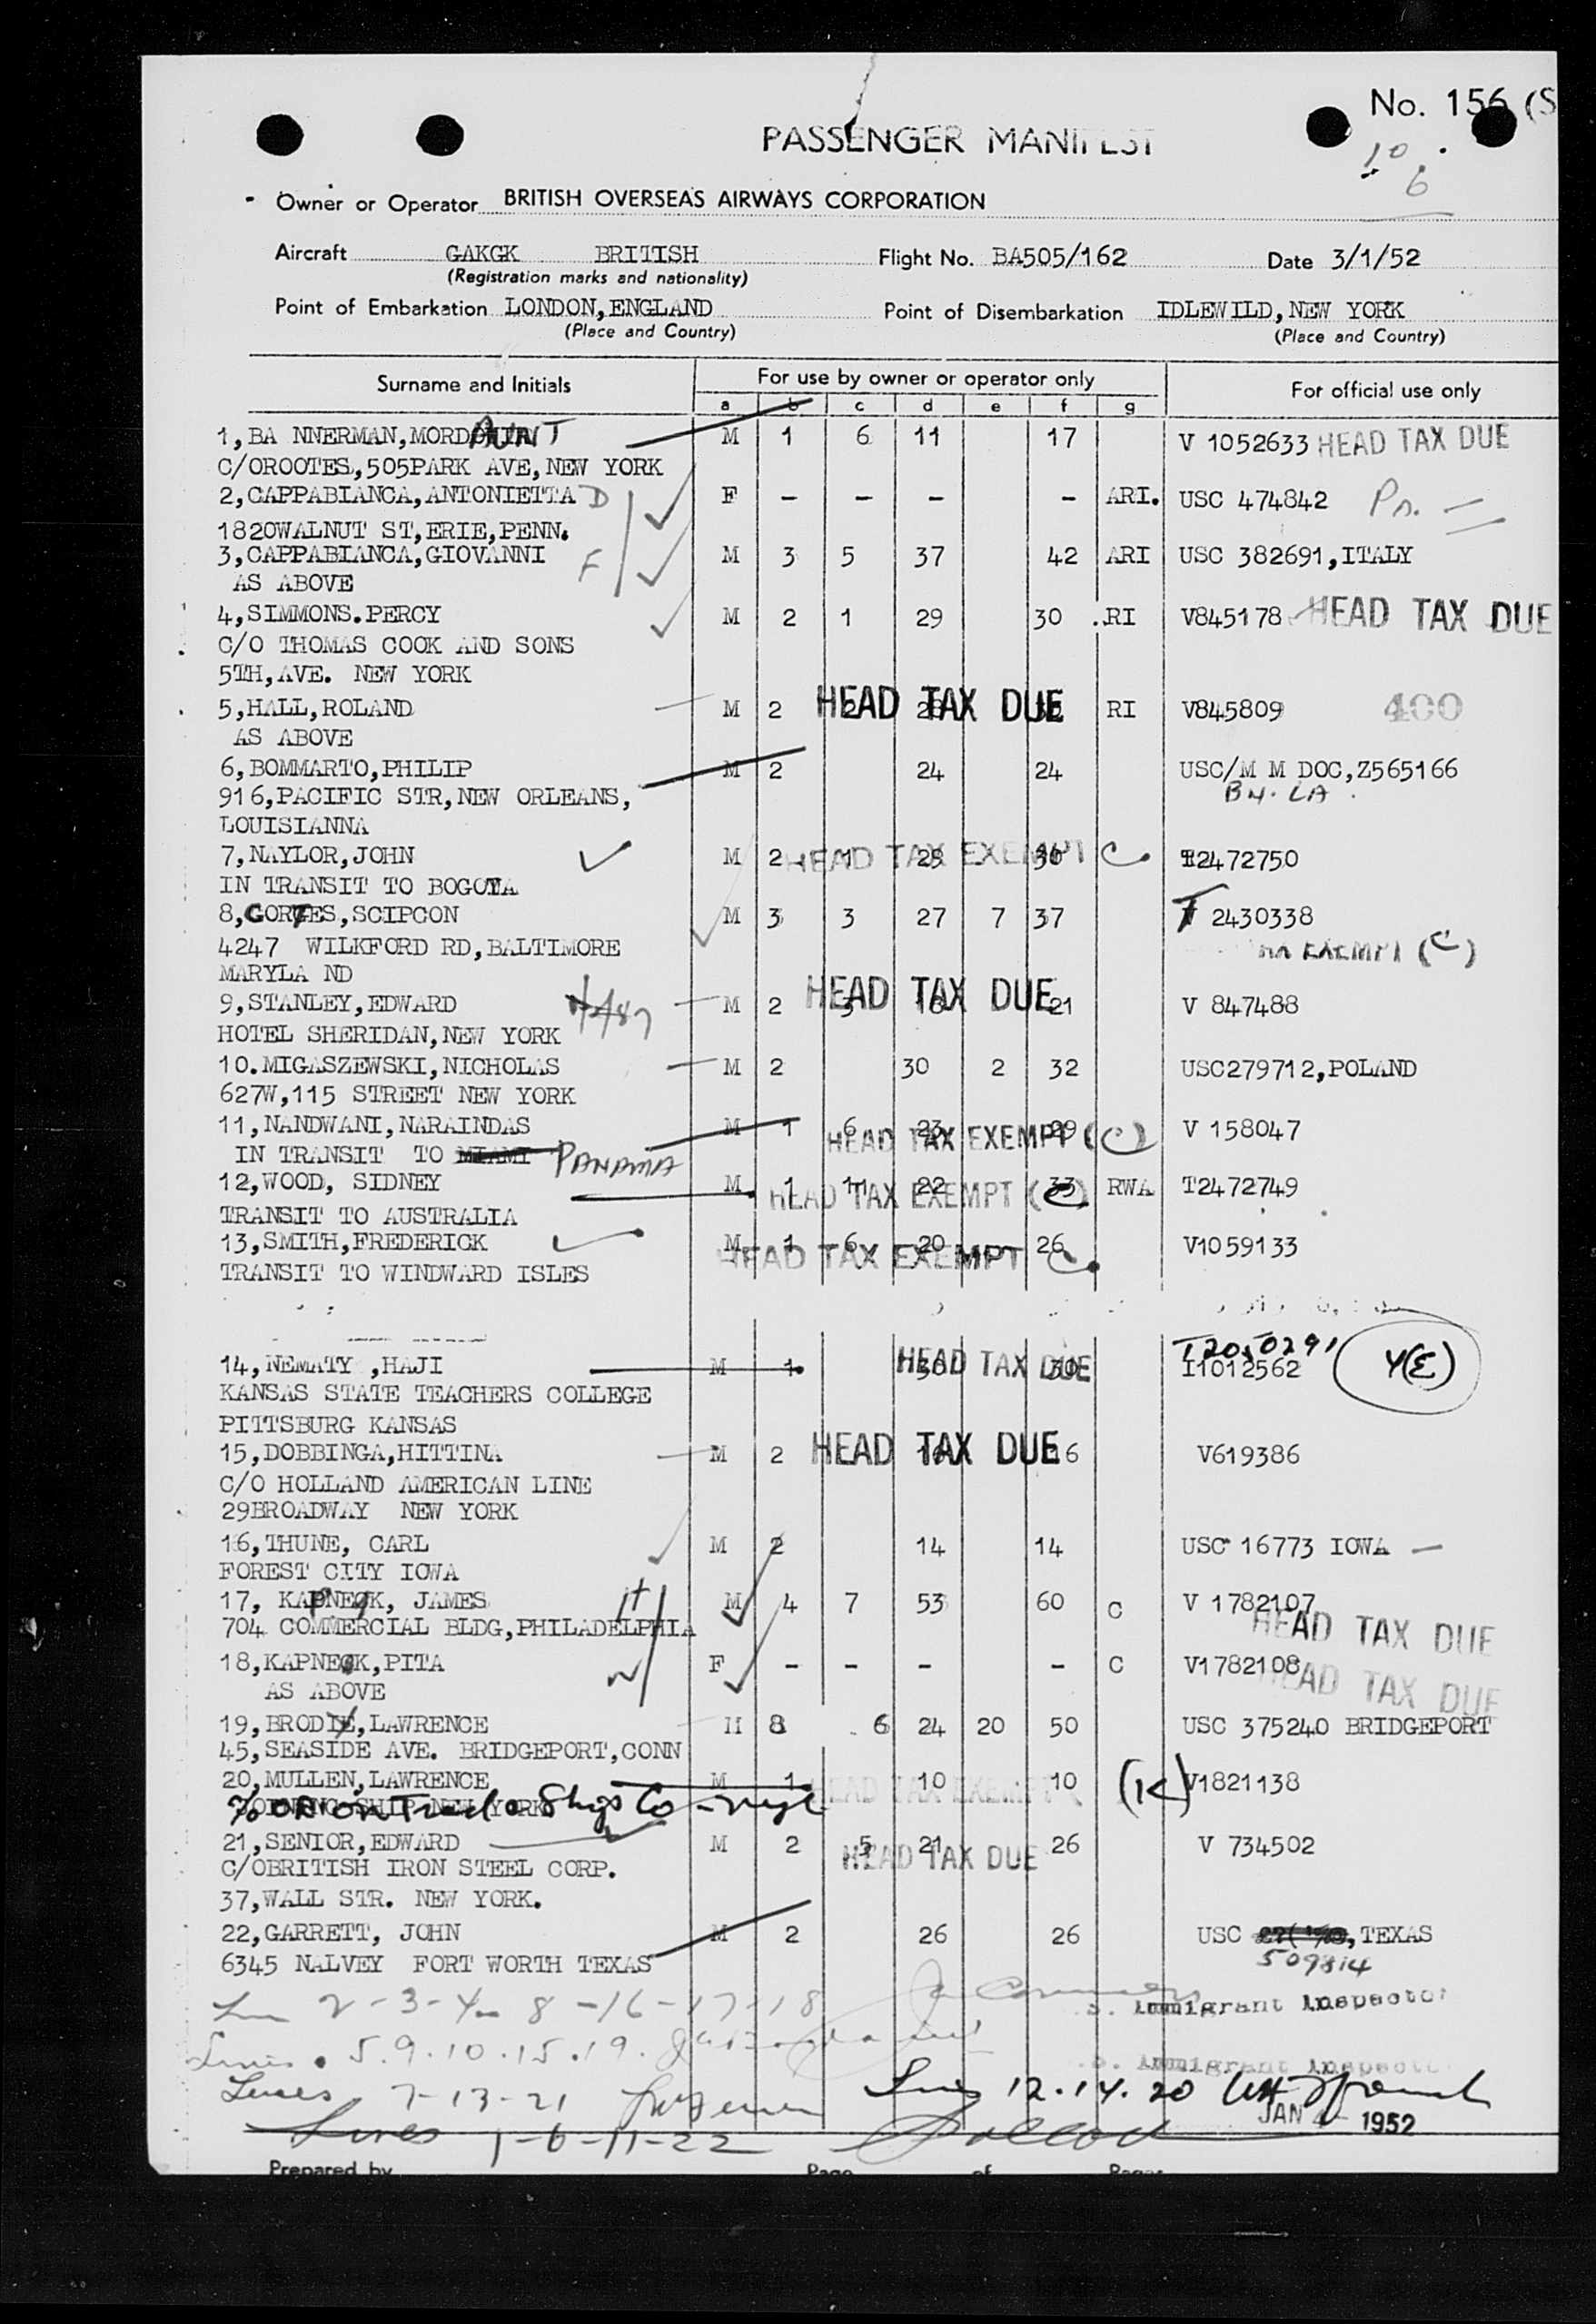 No. 156 (S
PASSENGER MANIFEST
10
6
Owner or Operator BRITISH OVERSEAS AIRWAYS CORPORATION
Aircraft GAKGK BRITISH Flight No. BA505/162 Date 3/1/52
(Registration marks and nationality)
Point of Embarkation LONDON,ENGLAND Point of Disembarkation IDLEWILD,NEW YORK
(Place and Country) (Place and Country)
Surname and Initials For use by owner or operator only For official use only
a b c d e f g
1,BA NNERMAN,MORDAUNT M 1 6 11 17 V 1052633 HEAD TAX DUE
C/OROOTES,505PARK AVE,NEW YORK
2,CAPPABIANCA,ANTONIETTA D F - - - - ARI. USC 474842
1820WALNUT ST,ERIE,PENN.
3,CAPPABIANCA,GIOVANNI F M 3 5 37 42 ARI USC 382691,ITALY
AS ABOVE
4,SIMMONS.PERCY M 2 1 29 30 .RI V845178 HEAD TAX DUE
C/O THOMAS COOK AND SONS
5TH,AVE. NEW YORK
5,HALL,ROLAND M 2 HEAD TAX DUE RI V845809 400
AS ABOVE
6,BOMMARTO,PHILIP M 2 24 24 USC/M M DOC,Z565166
916,PACIFIC STR,NEW ORLEANS, B4. LA.
LOUISIANNA
7,NAYLOR,JOHN M 2 1 29 30 HEAD TAX EXEMPT C T2472750
IN TRANSIT TO BOGOTA
8,CORTES,SCIPCON M 3 3 27 7 37 T 2430338
4247 WILKFORD RD,BALTIMORE EXEMPT (C)
MARYLA ND
9,STANLEY,EDWARD M 2 3 18 21 HEAD TAX DUE V 847488
HOTEL SHERIDAN,NEW YORK
10.MIGASZEWSKI,NICHOLAS M 2 30 2 32 USC279712,POLAND
627W,115 STREET NEW YORK
11,NANDWANI,NARAINDAS M 1 6 23 29 HEAD TAX EXEMPT (C) V 158047
IN TRANSIT TO MIAMI PANAMA
12,WOOD, SIDNEY M 1 11 22 33 HEAD TAX EXEMPT (C) RWA T2472749
TRANSIT TO AUSTRALIA
13,SMITH,FREDERICK M 1 6 20 26 HEAD TAX EXEMPT C. V1059133
TRANSIT TO WINDWARD ISLES
T2050291
14,NEMATY ,HAJI M 1 30 30 HEAD TAX DUE I1012562 Y(E)
KANSAS STATE TEACHERS COLLEGE
PITTSBURG KANSAS
15,DOBBINGA,HITTINA M 2 16 16 HEAD TAX DUE V619386
C/O HOLLAND AMERICAN LINE
29BROADWAY NEW YORK
16,THUNE, CARL M 2 14 14 USC 16773 IOWA
FOREST CITY IOWA
17, KAPNEK, JAMES H M 4 7 53 60 C V 1782107
704 COMMERCIAL BLDG,PHILADELPHIA HEAD TAX DUE
18,KAPNEK,PITA W F - - - - C V1782108
AS ABOVE HEAD TAX DUE
19,BRODY,LAWRENCE M 8 6 24 20 50 USC 375240 BRIDGEPORT
45,SEASIDE AVE. BRIDGEPORT,CONN
20,MULLEN,LAWRENCE M 1 10 10 HEAD TAX EXEMPT (K) V1821138
21,SENIOR,EDWARD M 2 5 21 26 V 734502
C/OBRITISH IRON STEEL CORP. HEAD TAX DUE
37,WALL STR. NEW YORK.
22,GARRETT, JOHN M 2 26 26 USC ,TEXAS
6345 NALVEY FORT WORTH TEXAS 509814
2-3-4-8-16-17-18 Immigrant Inspector
Lines 5.9.10.15.19. Immigrant Inspector
Lines 7-13-21 Lines 12.14.20
JAN 4 1952
Lines 1-6-11-22
Prepared by Page of Pages